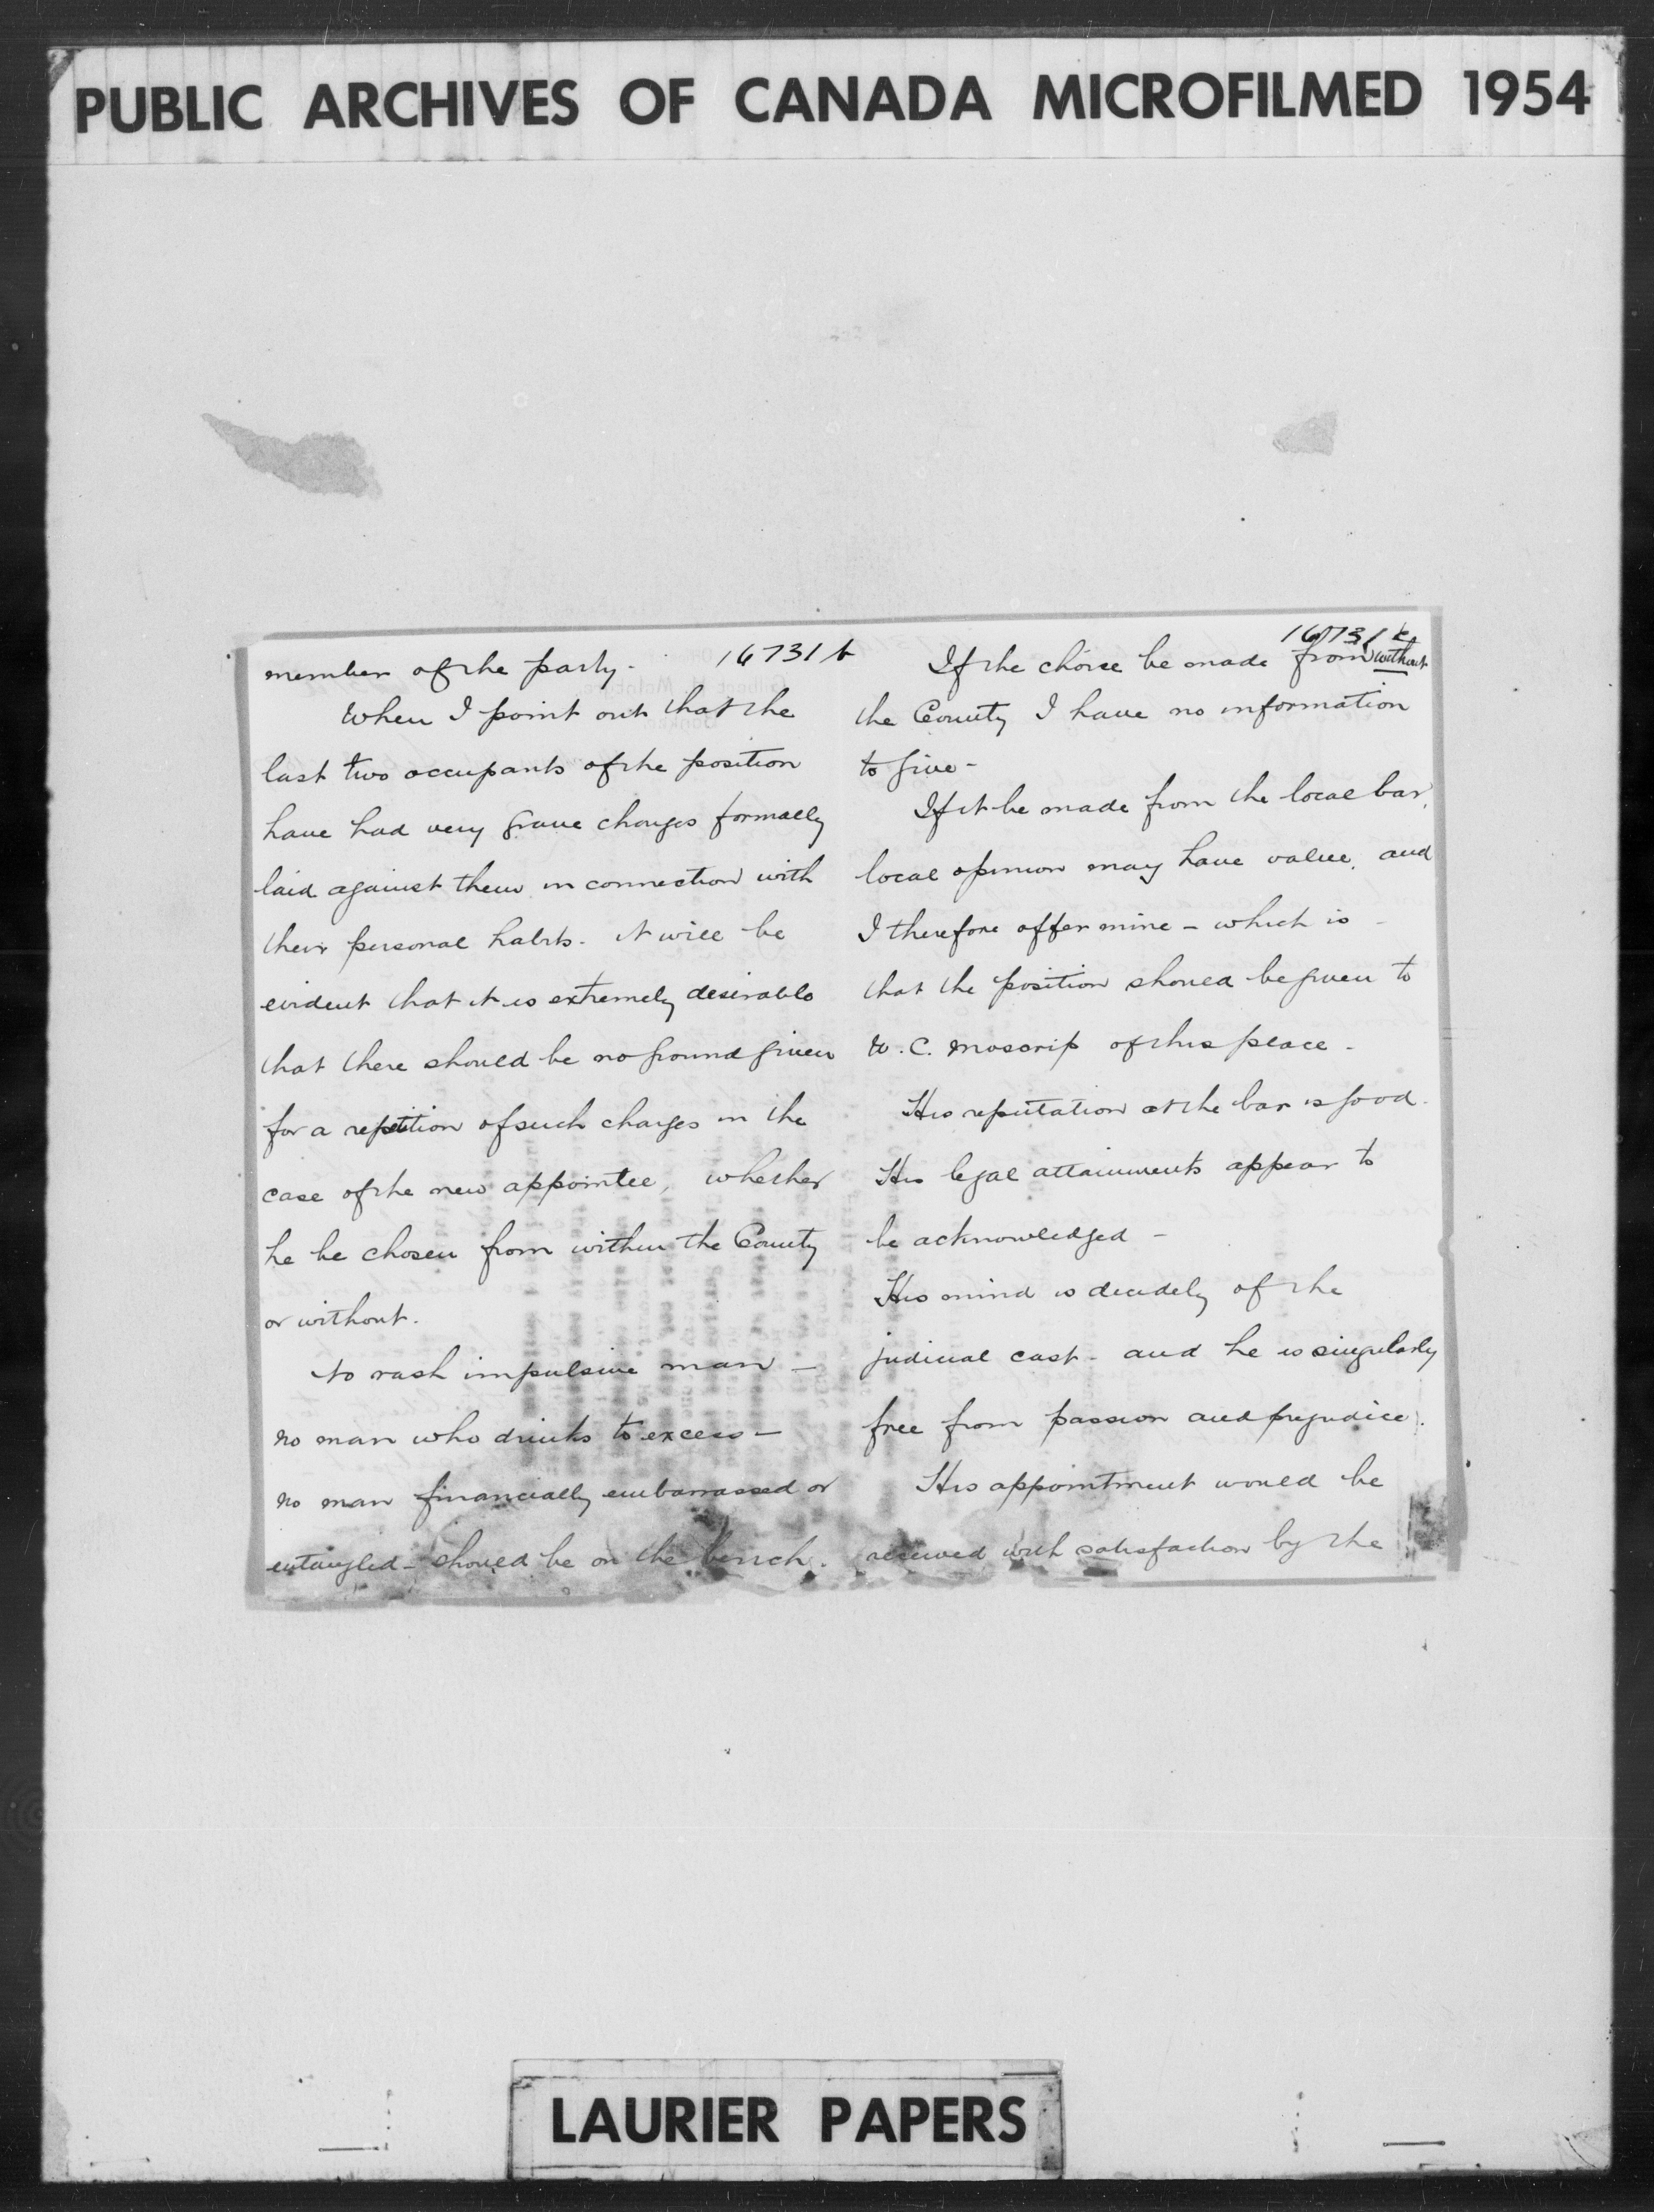 PUBLIC ARCHIVES OF CANADA MICROFILMED 1954
16731 b
member of the party.
When I point out that the
last two occupants of the position
have had very grave charges formally
laid against them in connection with
their personal habits. it will be
evident that it is extremely desirable
that there should be no ground given
for a repetition of such charges in the
case of the new appointee, whether
he be chosen from within the County
or without.
No rash impulsive man —
no man who drinks to excess —
no man financially embarrassed or
entangled — should be on the bench.
16731 c
If the choice be made from without
the County I have no information
to give -
If it be made from the local bar,
local opinion may have value, and
I therefore offer mine — which is -
that the position should be given to
W. C. Moscrip of this place -
His reputation at the bar is good.
His legal attainments appear to
be acknowledged -
His mind is decidely of the
judicial cast - and he is singularly
free from passion and prejudice.
His appointment would be
received with satisfaction by the
LAURIER PAPERS